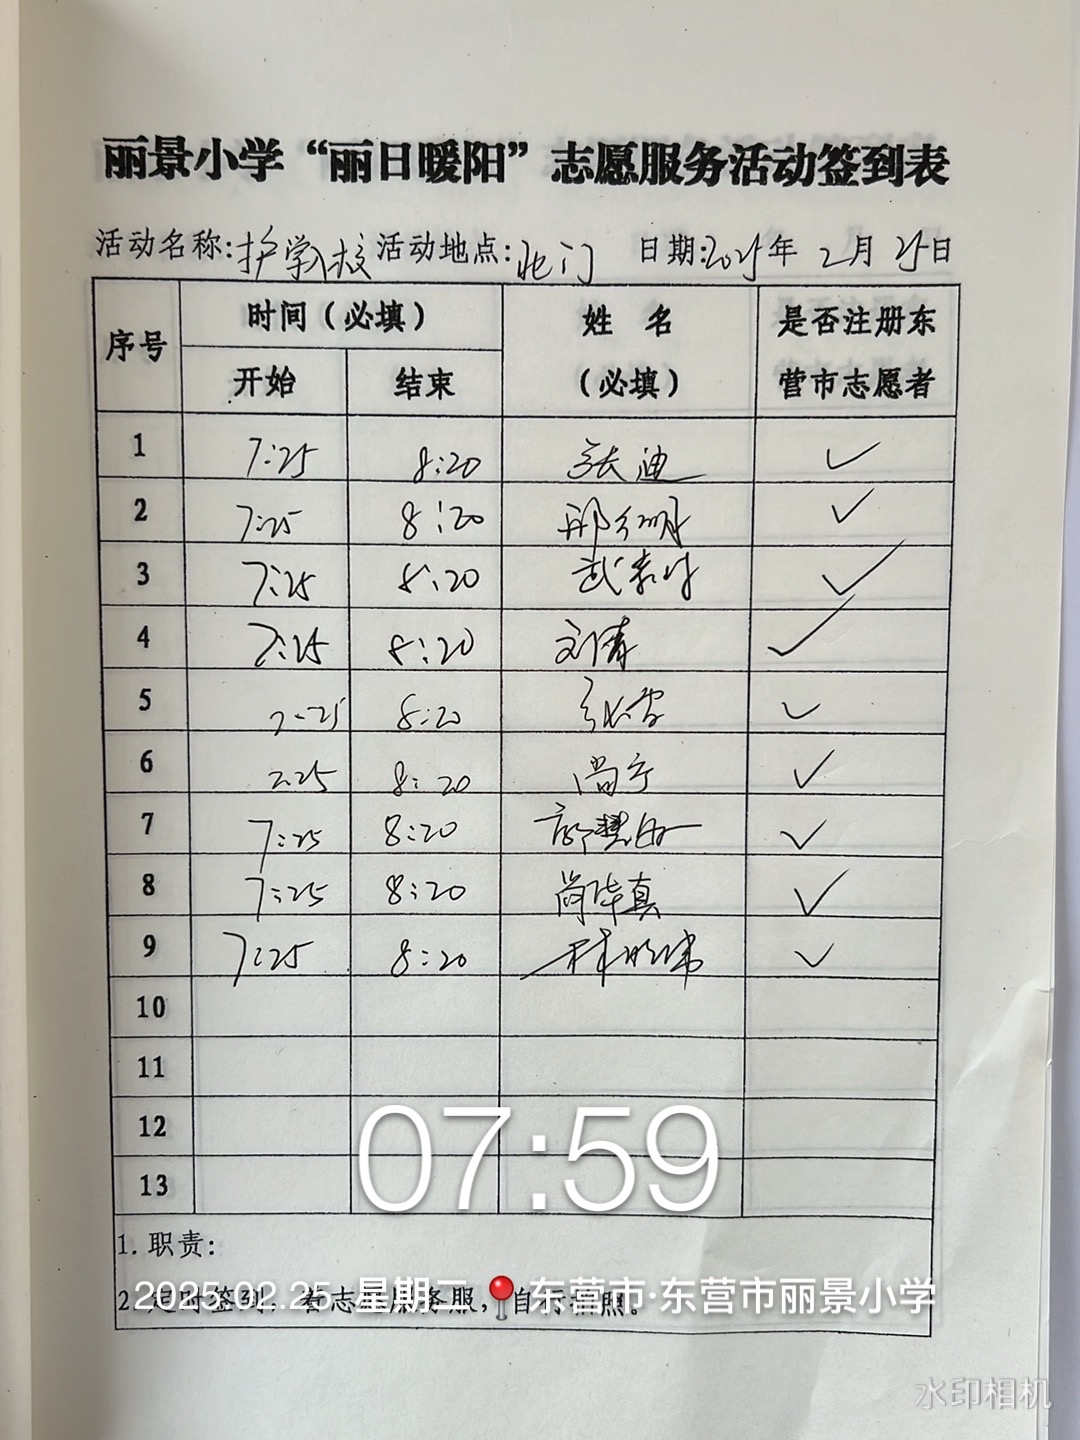 丽景小学“丽日暖阳”志愿服务活动签到表
活动名称:护学校 活动地点:北门 日期:2025年 2月 25日
序号 时间(必填) 姓 名 是否注册东
开始 结束 (必填) 营市志愿者
1 7:25 8:20 张迪 ✓
2 7:25 8:20 邢 ✓
3 7:25 8:20 武 ✓
4 7:25 8:20 刘倩 ✓
5 7:25 8:20 张雪 ✓
6 7:25 8:20 尚宁 ✓
7 7:25 8:20 ✓
8 7:25 8:20 尚华真 ✓
9 7:25 8:20 ✓
10
11
12
13
07:59
1.职责:
2.定时签到,着志愿服务服,自行拍照。
2025.02.25 星期二 东营市·东营市丽景小学
水印相机